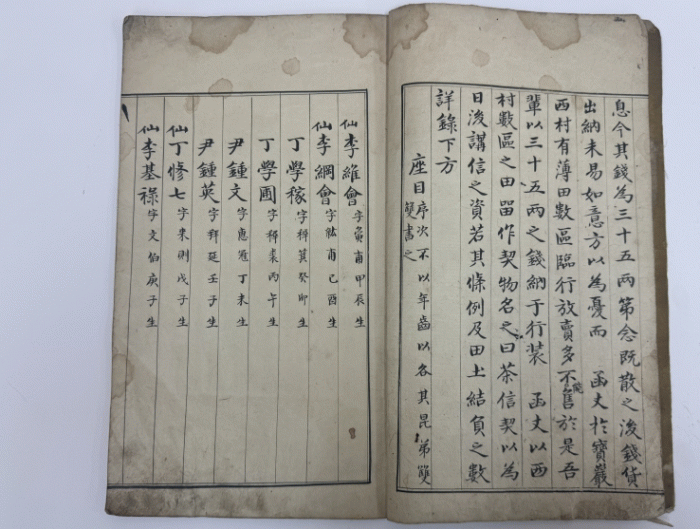 息今其錢為三十五兩第念既散之後錢貨
出納未易如意方以為憂而 函丈於寶巖
西村有薄田數區臨行放賣多不能售於是吾
輩以三十五兩之錢納于行裝 函丈以西
村數區之田留作契物名之曰茶信契以為
日後講信之資若其條例及田土結負之數
詳錄下方
座目 序次不以年齒以各其昆弟雙
雙書之
仙李維會 字寅甫甲辰生
仙李綱會 字紘甫己酉生
丁學稼 字稺箕癸卯生
丁學圃 字稺裘丙午生
尹鍾文 字惠冠丁未生
尹鍾英 字拜延壬子生
仙丁修七 字來則戊子生
仙李基祿 字文伯庚子生